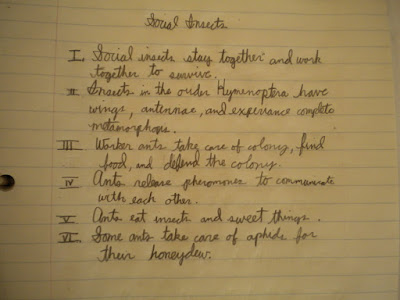 Social Insects
I. Social insects stay together and work
together to survive.
II Insects in the order Hymenoptera have
wings, antennae, and experiance complete
metamorphosis.
III Worker ants take care of colony, find
food, and defend the colony.
IV Ants release pheromones to communicate
with each other.
V. Ants eat insects and sweet things.
VI. Some ants take care of aphids for
their honeydew.